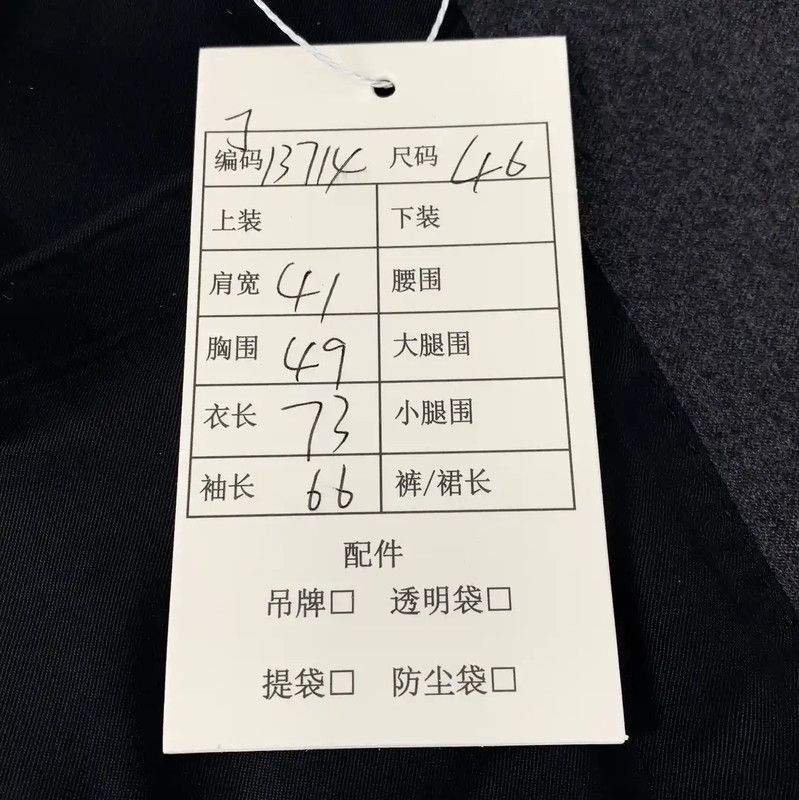 J
编码 13714 尺码 46
上装 下装
肩宽 41 腰围
胸围 49 大腿围
衣长 73 小腿围
袖长 66 裤/裙长
配件
吊牌□ 透明袋□
提袋□ 防尘袋□